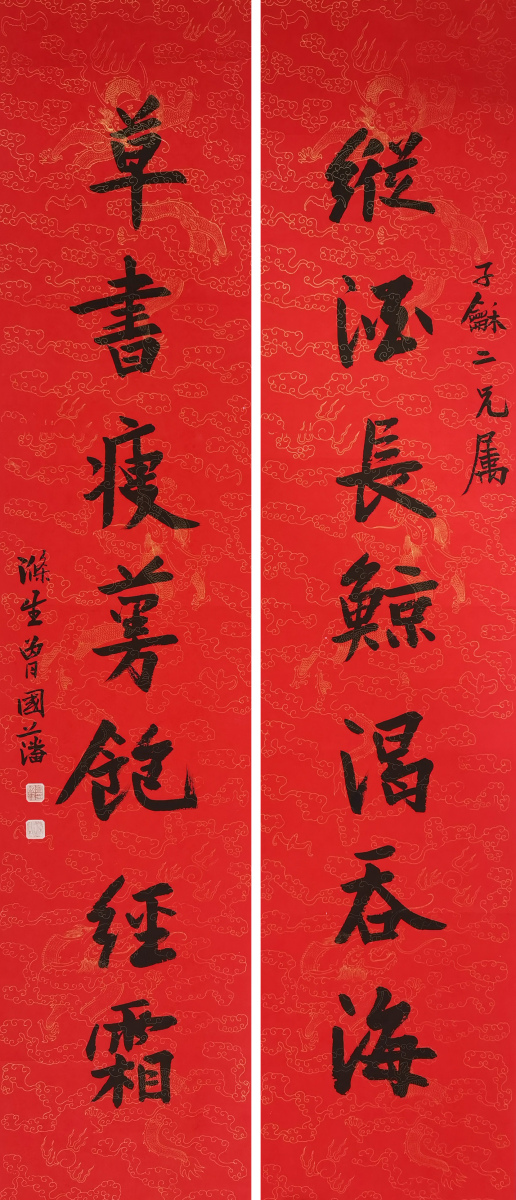 子龢二兄属
縱酒長鯨渴吞海
草書瘦蔓飽經霜
滌生曾國藩